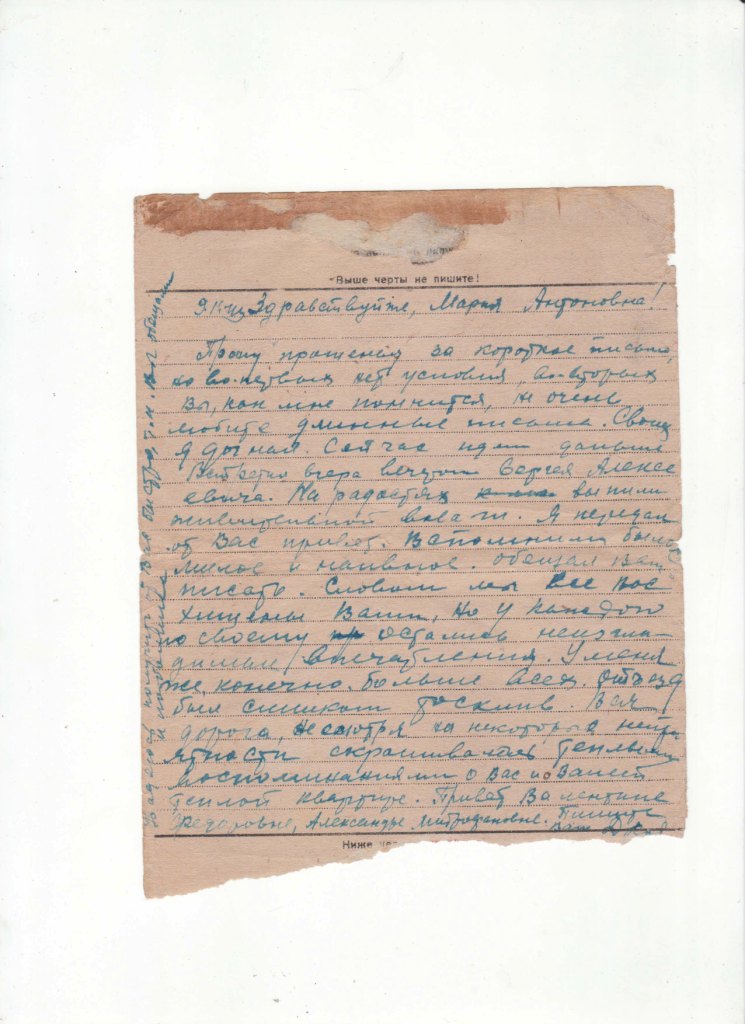 Выше черты не пишите!
Здравствуйте, Мария Антоновна!
Прошу прощения за короткое письмо,
но во-первых нет условия, а во-вторых
Вы, как мне помнится, не очень
любите длинные письма. Своих
я догнал. Сейчас идем дальше
Встретил вчера вечером Сергея Алексе
евича. На радостях выпили
живительной влаги. Я передал
от Вас привет. Вспомнили было
милое и наивное. Обещал Вам
писать. Словом мы все вос
хищены Вами, но у каждого
по своему остались неизгла-
димые впечатления. У меня
же, конечно, больше всех. Отъезд
был слишком тосклив. Вся
дорога, несмотря на некоторые непри
ятности скрашивалась теплыми
воспоминаниями о Вас и о Вашей
теплой квартире. Привет Валентине
Федоровне, Александре Митрофановне. Пишите
Ваш
Ниже че
Надеюсь получить от Вас быстро, т.к. Вы обещали